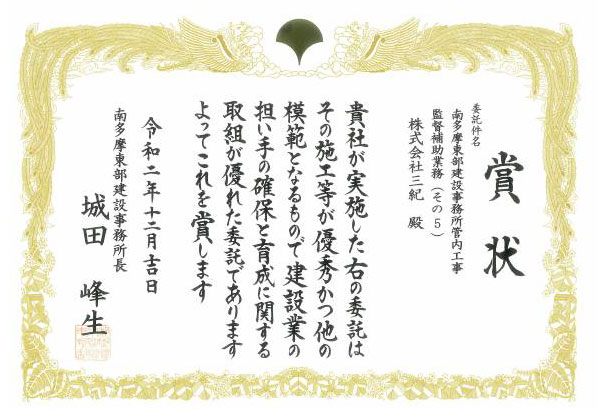 賞状
委託件名
南多摩東部建設事務所管内工事
監督補助業務（その５）
株式会社三紀 殿
貴社が実施した右の委託は
その施工等が優秀かつ他の
模範となるもので建設業の
担い手の確保と育成に関する
取組が優れた委託であります
よってこれを賞します
令和二年十二月吉日
南多摩東部建設事務所長
城田 峰生